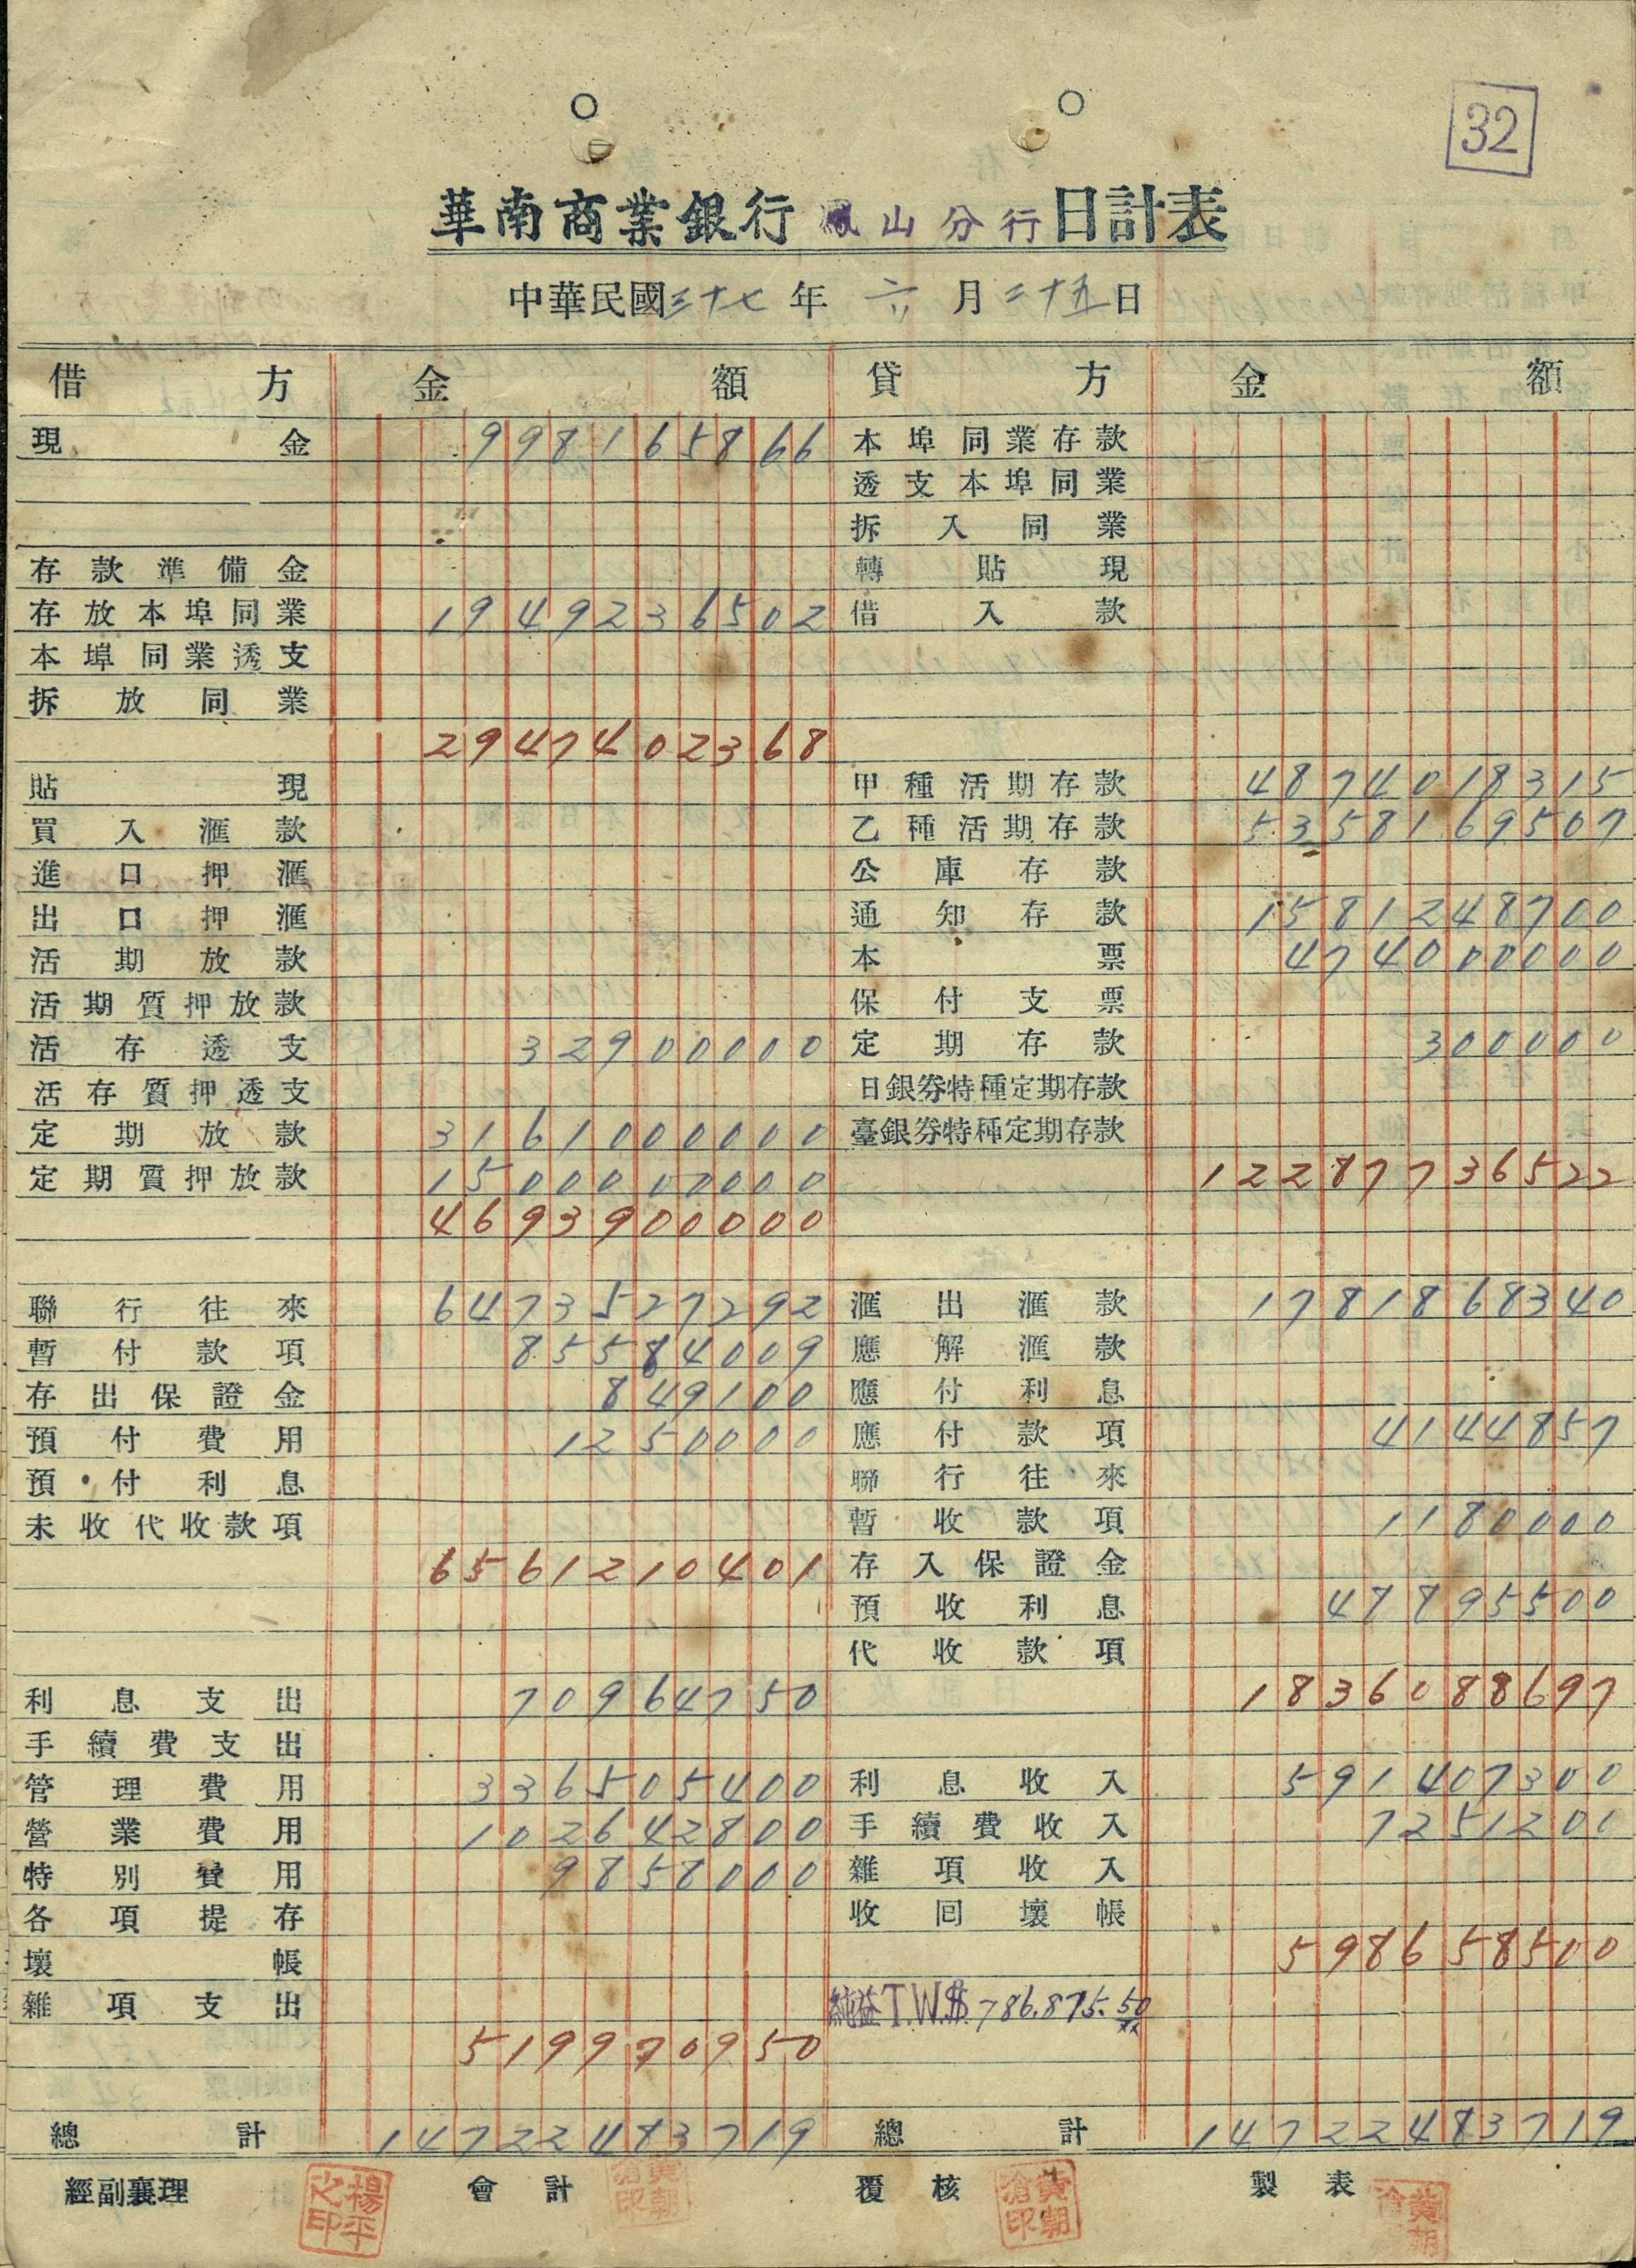 32
華南商業銀行 鳳山分行 日計表
中華民國三十七年 六月二十五日
借方 金額 貸方 金額
現金 998165866 本埠同業存款
透支本埠同業
拆入同業
存款準備金 轉貼現
存放本埠同業 1949236502 借入款
本埠同業透支
拆放同業
2947402368
貼現 甲種活期存款 4874018315
買入滙款 乙種活期存款 5358169507
進口押滙 公庫存款
出口押滙 通知存款 1581248700
活期放款 本票 474000000
活期質押放款 保付支票
活存透支 32900000 定期存款 300000
活存質押透支 日銀券特種定期存款
定期放款 3161000000 臺銀券特種定期存款
定期質押放款 1500000000 12287736522
4693900000
聯行往來 6473527292 滙出滙款 1781868340
暫付款項 85584009 應解滙款
存出保證金 849100 應付利息
預付費用 1250000 應付款項 4144857
預付利息 聯行往來
未收代收款項 暫收款項 1180000
6561210401 存入保證金
預收利息 48895500
代收款項
利息支出 70964750 1836088697
手續費支出
管理費用 336505400 利息收入 591407300
營業費用 102642800 手續費收入 7251200
特別費用 9858000 雜項收入
各項提存 收回壞帳
壞帳 598658500
雜項支出 純益T.W.$ 786.875.50
519970950
總計 14722483719 總計 14722483719
經副襄理 楊平之印 會計 黃朝滄印 覆核 黃朝滄印 製表 黃朝滄